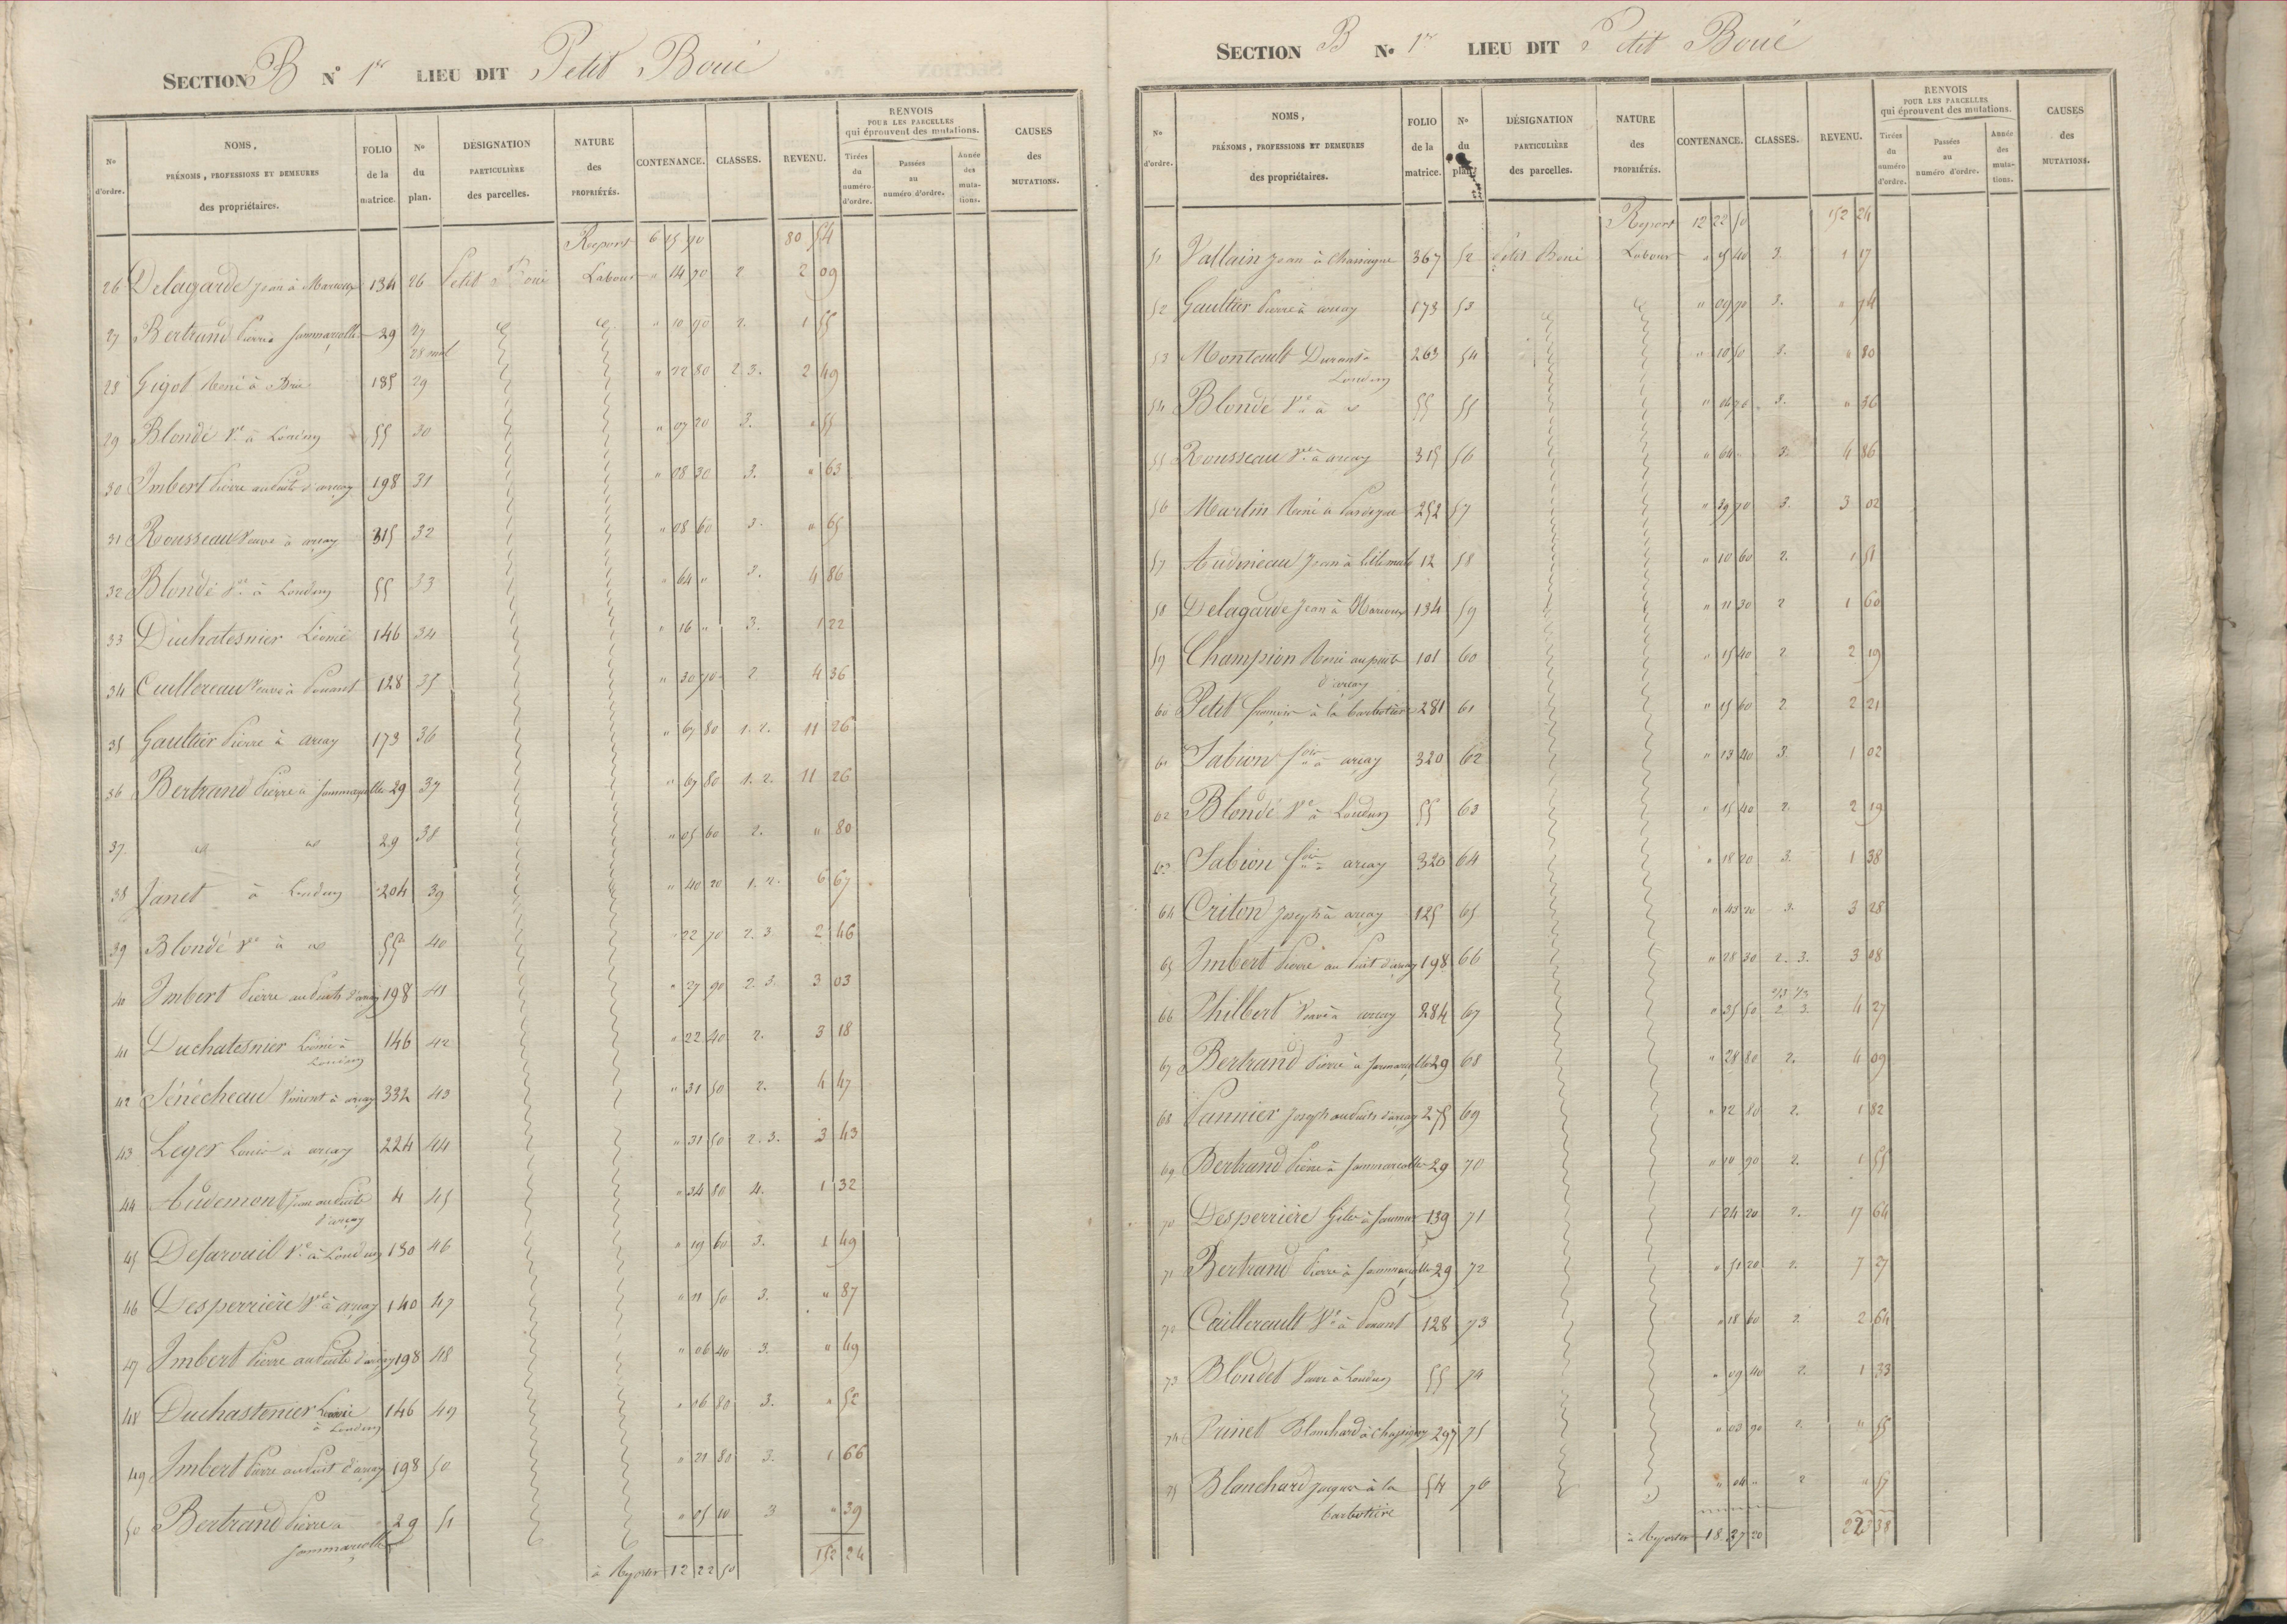 SECTION B N° 1er LIEU DIT Petit Boué
N° d'ordre. NOMS, PRÉNOMS, PROFESSIONS ET DEMEURES des propriétaires. FOLIO de la matrice. N° du plan. DÉSIGNATION PARTICULIÈRE des parcelles. NATURE des PROPRIÉTÉS. CONTENANCE. CLASSES. REVENU. RENVOIS POUR LES PARCELLES qui éprouvent des mutations. Tirées du numéro d'ordre. Passées au numéro d'ordre. Année des mutations. CAUSES des MUTATIONS.
Report 6 15 90 80 54
26 Delagarde Jean à 134 26 Petit Boué Labour " 14 70 2 2 09
27 Bertrand Pierre à Sammarcolle 29 27 28 " 10 90 2. 1 55
28 Gigot René à Brie 185 29 " 22 80 2 3. 2 49
29 Blondé Ve à Loudun 55 30 " 07 20 3. " 55
30 Imbert Pierre au Puits d'arcay 198 31 " 08 30 3. " 63
31 Rousseau Veuve à arçay 315 32 " 08 60 3. " 65
32 Blondé Ve à Loudun 55 33 " 64 " 3. 4 86
33 Duchatesnier 146 34 " 16 " 3. 1 22
34 Cuillereau Veuve à Pouant 128 35 " 30 70 2 4 36
35 Gaultier Pierre à arcay 173 36 " 67 80 1. 2. 11 26
36 Bertrand Pierre à Sammarçolle 29 37 " 67 80 1. 2. 11 26
37 29 38 " 05 60 2. " 80
38 Janet à Loudun 204 39 " 40 20 1. 2. 6 67
39 Blondé Ve à 55 40 " 22 70 2. 3 2 46
40 Imbert Pierre au Puits d'arçay 198 41 " 27 90 2. 3. 3 03
41 Duchatesnier à Loudun 146 42 " 22 40 2. 3 18
42 Sénécheau Vincent à arcay 332 43 " 31 50 2. 4 47
43 Leger Louis à arçay 224 44 " 31 50 2. 3. 3 43
44 Audemont Jean au Puits d'arçay 4 45 " 34 80 4. 1 32
45 Ve à Loudun 130 46 " 19 60 3. 1 49
46 Desperrière Ve à arçay 140 47 " 11 50 3. " 87
47 Imbert Pierre au Puits d'arçay 198 48 " 06 40 3. " 49
48 Duchastenier à Loudun 146 49 " 80 3. " 52
49 Imbert Pierre au Puit d'arçay 198 50 " 21 80 3. 1 66
50 Bertrand Pierre à Sammarcolle 29 51 " 05 10 3 " 39
à Reporter 12 22 50 152 24
SECTION B N° 1er LIEU DIT Petit Boué
N° d'ordre. NOMS, PRÉNOMS, PROFESSIONS ET DEMEURES des propriétaires. FOLIO de la matrice. N° du plan. DÉSIGNATION PARTICULIÈRE des parcelles. NATURE des PROPRIÉTÉS. CONTENANCE. CLASSES. REVENU. RENVOIS POUR LES PARCELLES qui éprouvent des mutations. Tirées du numéro d'ordre. Passées au numéro d'ordre. Année des mutations. CAUSES des MUTATIONS.
Report 12 22 50 152 24
51 Vallain Jean à 367 52 Petit Boué Labour " 15 40 3. 1 17
52 Gaultier Pierre à arcay 173 53 " 09 70 3. " 74
53 Montault Durant à Loudun 263 54 " 10 50 3. " 80
54 Blondé Ve à 55 55 " 3. " 36
55 Rousseau Ve à arcay 315 56 " 64 " 3. 4 86
56 Martin René à 252 57 " 39 70 3. 3 02
57 Audineau Jean à 12 58 " 10 60 2. 1 51
58 Delagarde Jean à 134 59 " 11 30 2 1 60
59 Champion René au puits d'arcay 101 60 " 15 40 2 2 19
60 Petit françois à la barbotière 281 61 " 15 60 2 2 21
61 Sabion à arçay 320 62 " 13 40 3. 1 02
62 Blondé Ve à Loudun 55 63 " 15 40 2. 2 19
63 Sabion à arçay 320 64 " 18 20 3. 1 38
64 Criton Joseph à arçay 125 65 " 43 20 3. 3 28
65 Imbert Pierre au Puit d'arçay 198 66 " 28 30 2. 3. 3 08
66 Philbert Veuve à arcay 284 67 " 35 50 2 3. 4 27
67 Bertrand Pierre à Sammarçolle 29 68 " 28 80 2. 4 09
68 Pannier Joseph au Puits d'arçay 275 69 " 12 80 2. 1 82
69 Bertrand Pierre à Sammarcolle 29 70 " 10 90 2. 1 55
70 Desperrière à Saumur 139 71 1 24 20 2. 17 64
71 Bertrand Pierre à Sammarçolle 29 72 " 51 20 2. 7 27
72 Cuillerault Ve à Pouant 128 73 " 18 60 2. 2 64
73 Blondet Veuve à Loudun 55 74 " 09 40 2. 1 33
74 Prinet Blanchard à 297 75 " 03 90 2. " 55
75 Blanchard Jacques à la barbotière 54 76 " 04 " 2 " 57
à Reporter 18 37 20 223 38